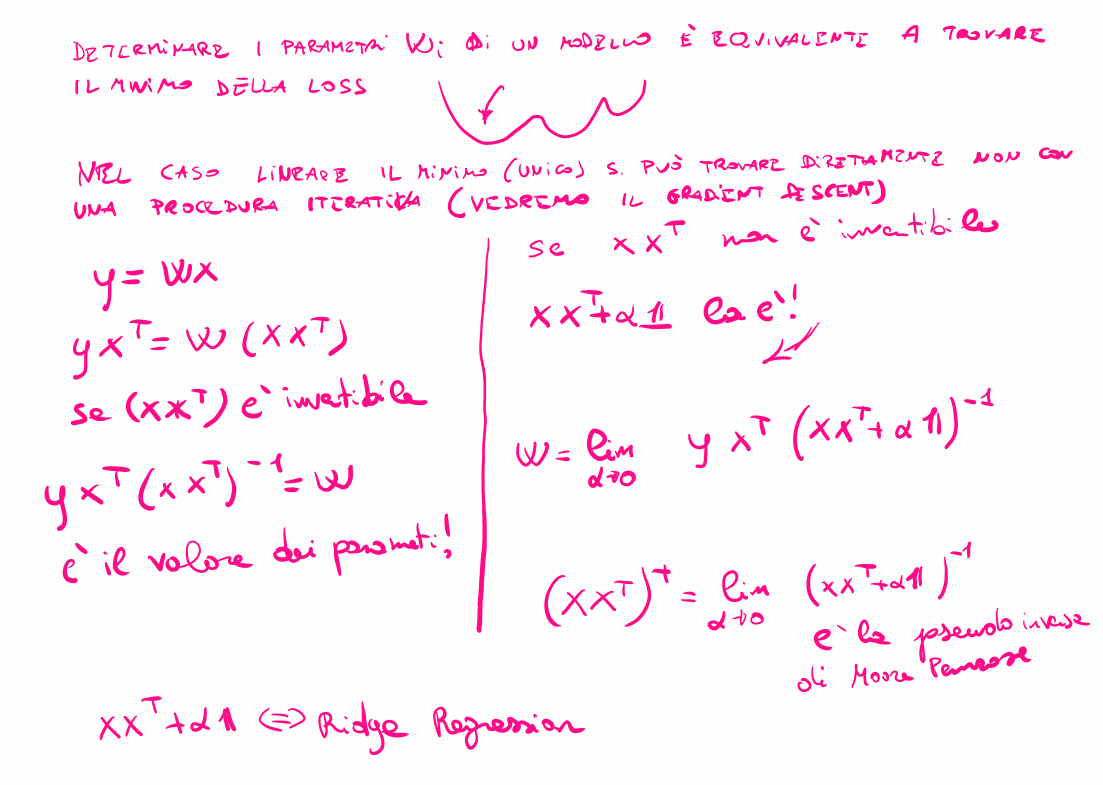 DETERMINARE I PARAMETRI Wi DI UN MODELLO È EQUIVALENTE A TROVARE
IL MINIMO DELLA LOSS
NEL CASO LINEARE IL MINIMO (UNICO) SI PUÒ TROVARE DIRETTAMENTE NON CON
UNA PROCEDURA ITERATIVA (VEDREMO IL GRADIENT DESCENT)
y = Wx
yx^T = W (xx^T)
se (xx^T) è invertibile
yx^T(xx^T)^-1 = W
è il valore dei parametri!
se xx^T non è invertibile
xx^T+α𝟙 lo è!
W = lim α→0 y x^T (xx^T+α𝟙)^-1
(xx^T)^+ = lim α→0 (xx^T+α𝟙)^-1
è la pseudo inversa
di Moore Penrose
xx^T+α𝟙 <=> Ridge Regression